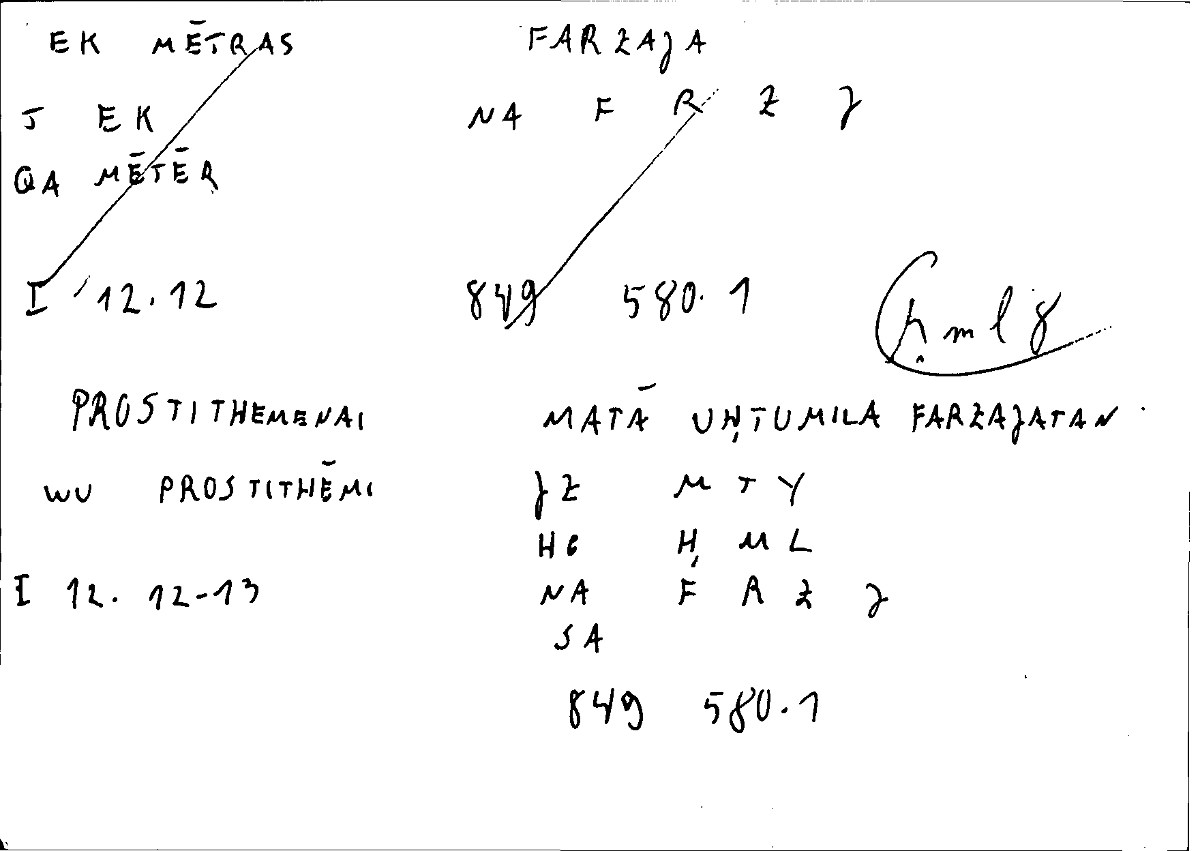 EK MĒTRAS FARZAJA
J EK NA F R Z J
QA MĒTĒR
I 12.12 849 580.1
ḥml 8
PROSTITHEMENAI MATĀ UḤTUMILA FARZAJATAN
WU PROSTITHĒMI JZ M T Y
HG Ḥ M L
I 12. 12-13 NA F R Z J
SA
849 580.1